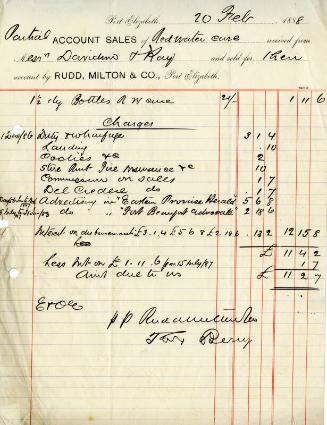 Port Elizabeth, 20 Feb 1888
Partial ACCOUNT SALES of Red water cure received from
Messrs Davidmo & Kay and sold for their
account by RUDD, MILTON & CO., Port Elizabeth.
1½ dy Bottles R W cure 21/- 1 11 6
Charges
1 Dec/86 Duty & wharfage 3 1 4
Landing .10
Coolies &c 2
Store Rent Fire Insurance &c 10
Commission on sales 1 7
Del Credere do 1 7
Advertising in "Eastern Province Herald" 5 6 8
do "Fort Beaufort Advocate" 2 18 6
Interest on disbursements £3.1.4 £5 6 8 £2 18 6 .13 2 12 15 8
£ 11 4 2
Less Int on £1.11.6 fr 15 May/87 1 7
Amt due to us £ 11 2 7
E&OE
pp Rudd Milton & Co